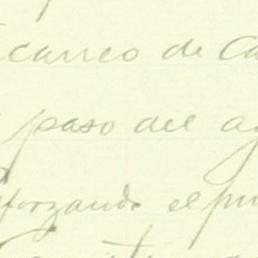 carreo de Ca
paso del ag
forzando el pu